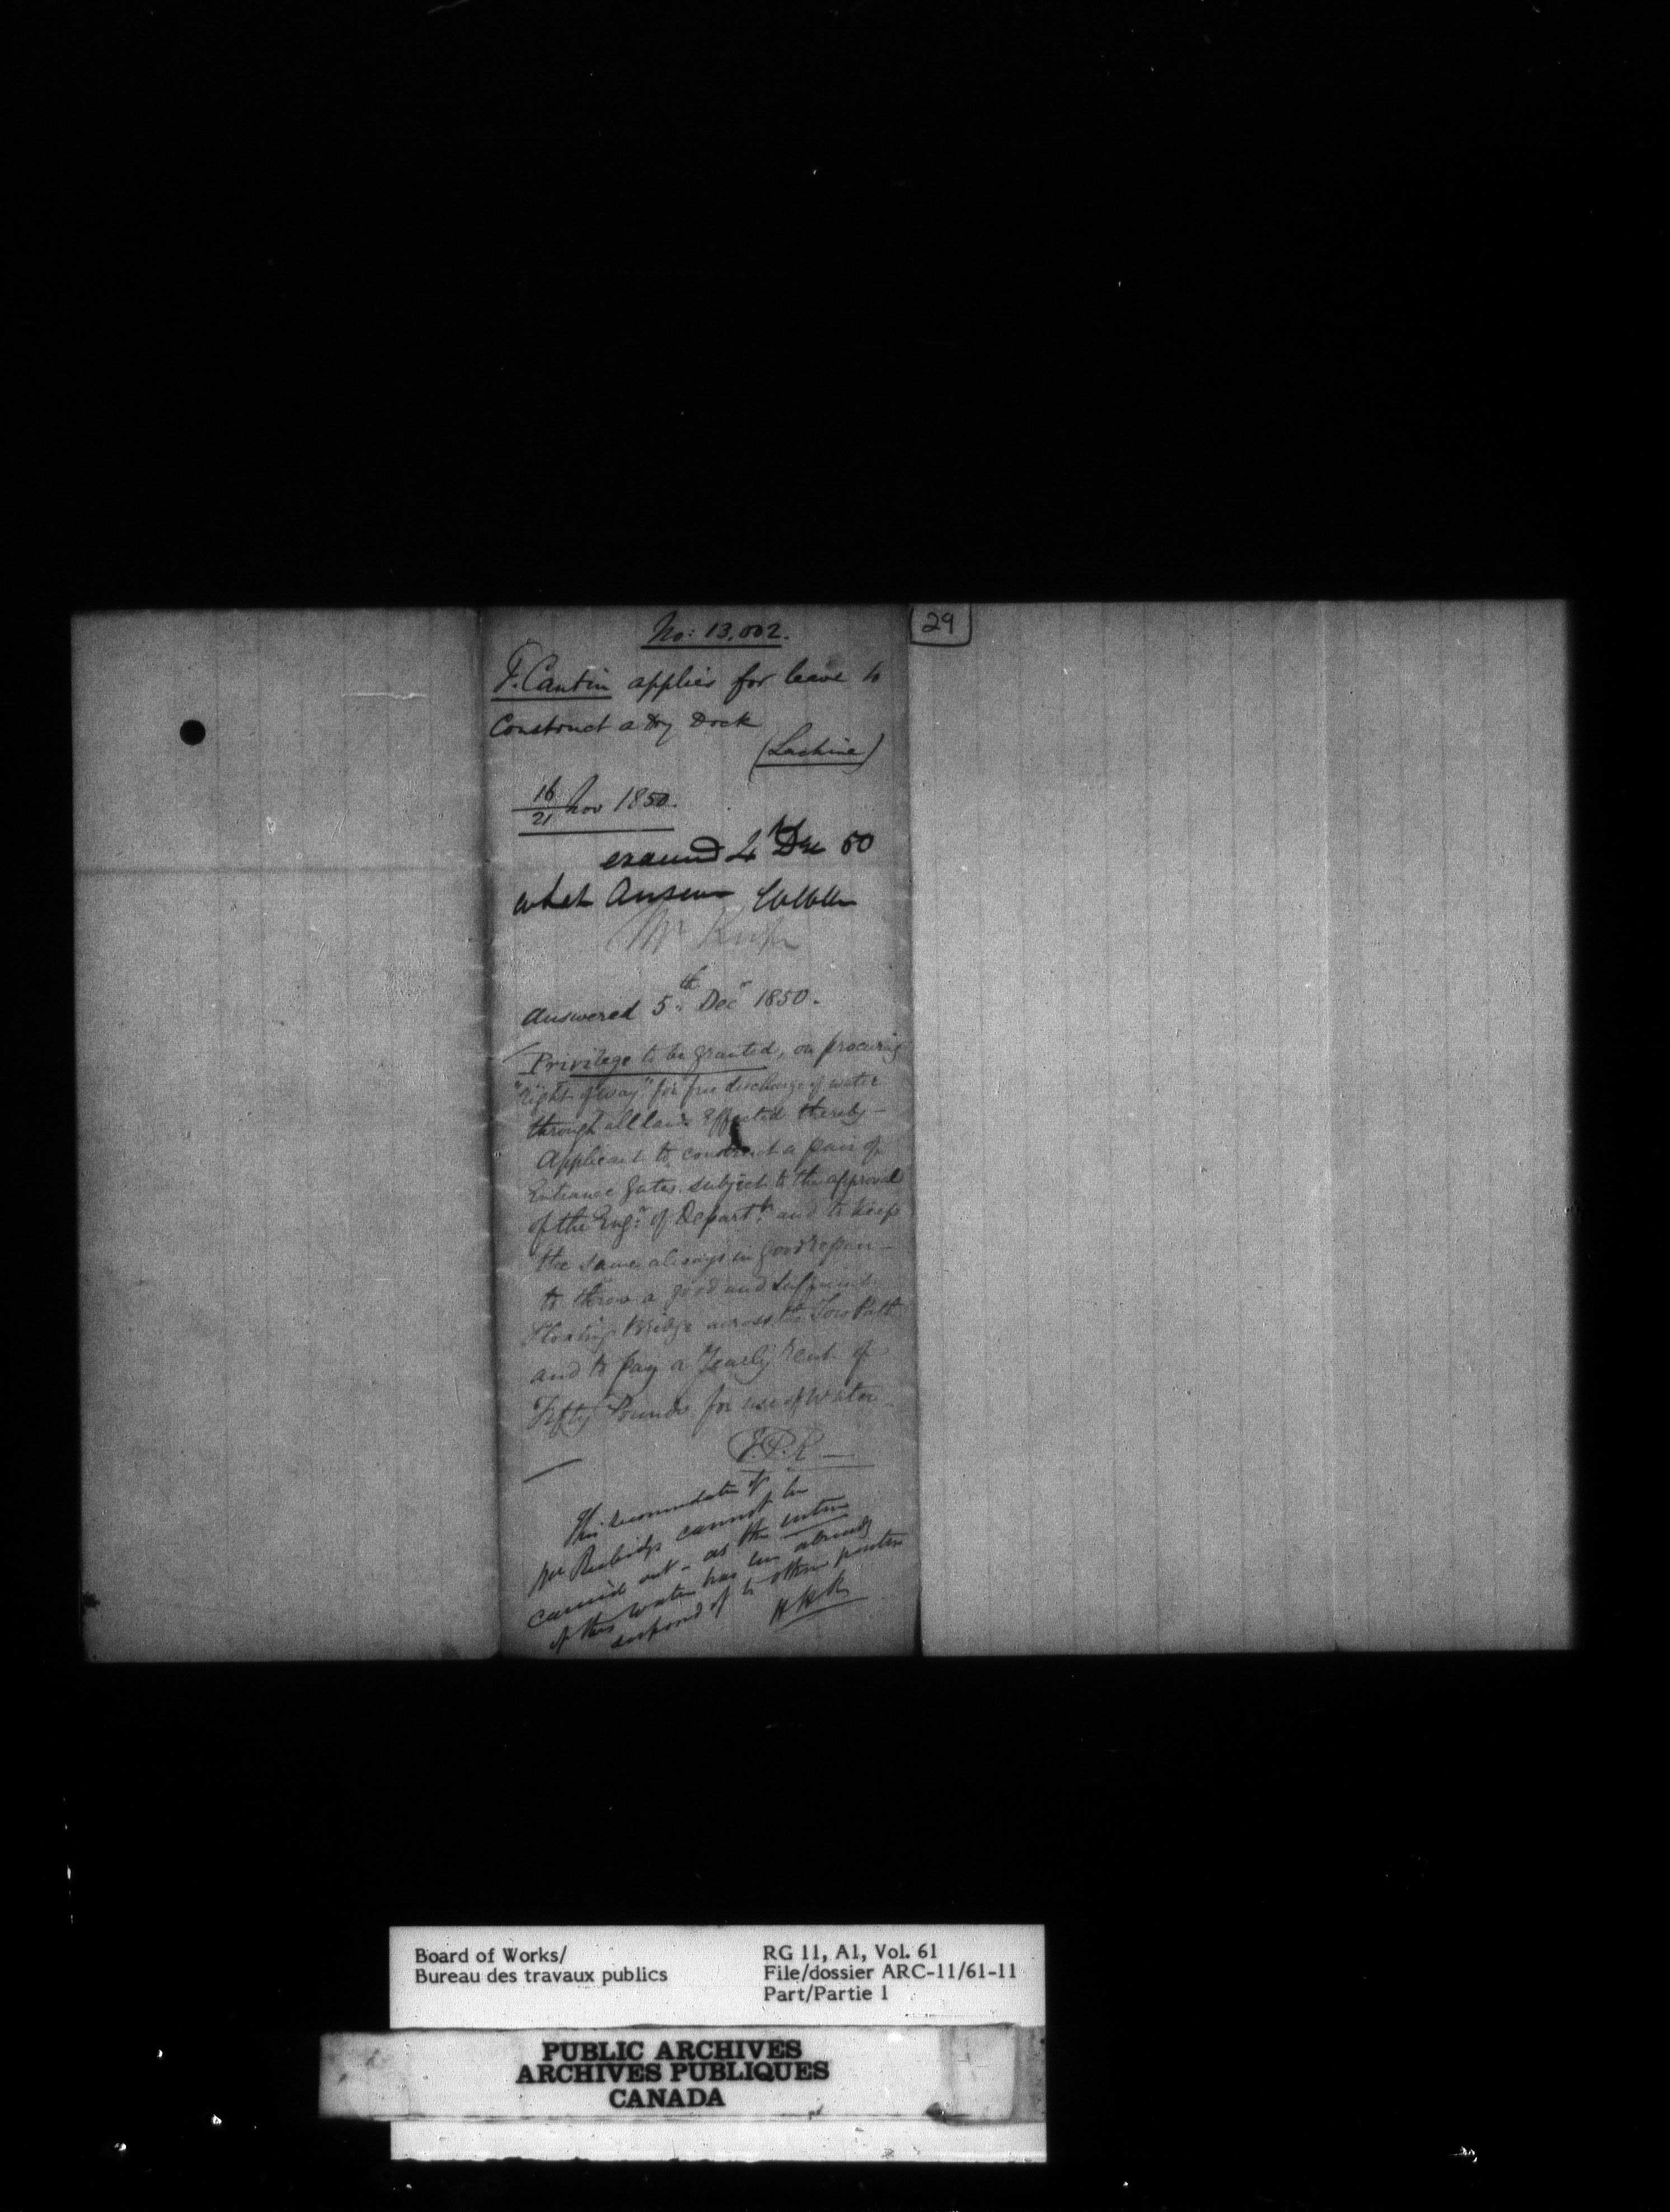 No: 13,002.
29
F. Cantin applies for leave to
Construct a Dry Dock
(Lachine)
16/21 Nov 1850.
4 Dec 50
what Answer
Mr
Answered 5th Decr 1850.
Privilege to be granted, on procuring
"right of way" for free discharge of water
through all land Effected thereby —
Applicant to construct a pair of
Entrance gates subject to the approval
of the Engr of Departt and to keep
the same always in good repair —
to throw a good and sufficient
Floating Bridge across the Tow Path
and to pay a Yearly Rent of
Fifty Pounds for use of Water —
F.P.R —
This recommendation of
Mr Rubidge cannot be
carried out — as the entire
of this water has been already
disposed of to other parties
Board of Works/
Bureau des travaux publics
RG 11, A1, Vol. 61
File/dossier ARC-11/61-11
Part/Partie 1
PUBLIC ARCHIVES
ARCHIVES PUBLIQUES
CANADA